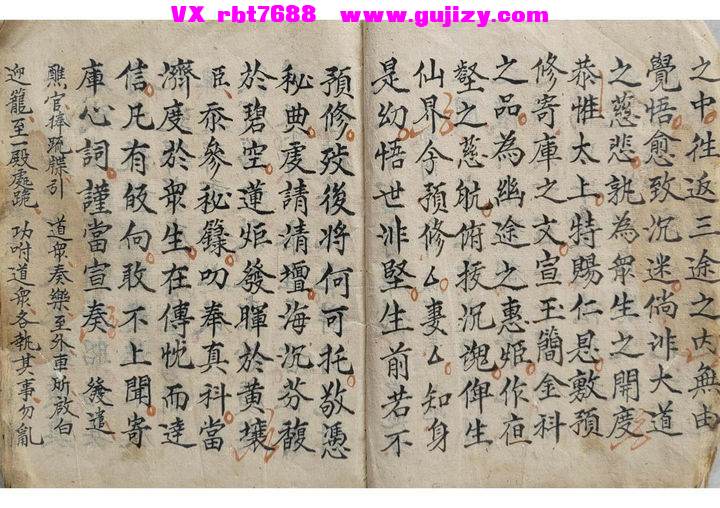 VX rbt7688 www.gujizy.com
之中往返三途之內無由
覺悟愈致沉迷倘非大道
之慈悲孰為眾生之開度
恭惟太上特賜仁恩敷預
修寄庫之文宣玉簡金科
之品為幽途之惠炬作夜
壑之慈航俯拔沉魂俾生
仙界今預修厶妻厶知身
是幻悟世非堅生前若不
預修歿後將何可托敬憑
秘典虔請清壇海沉芬馥
於碧空蓮炬發暉於黃壤
臣忝參秘籙叨奉真科當
濟度於眾生在傳忱而達
信凡有皈向敢不上聞寄
庫心詞謹當宣奏 發遣
醮官捧疏牒引 道眾奏樂至外車所啟白
迎籠至一殿處跪 功咐道眾各執其事勿亂